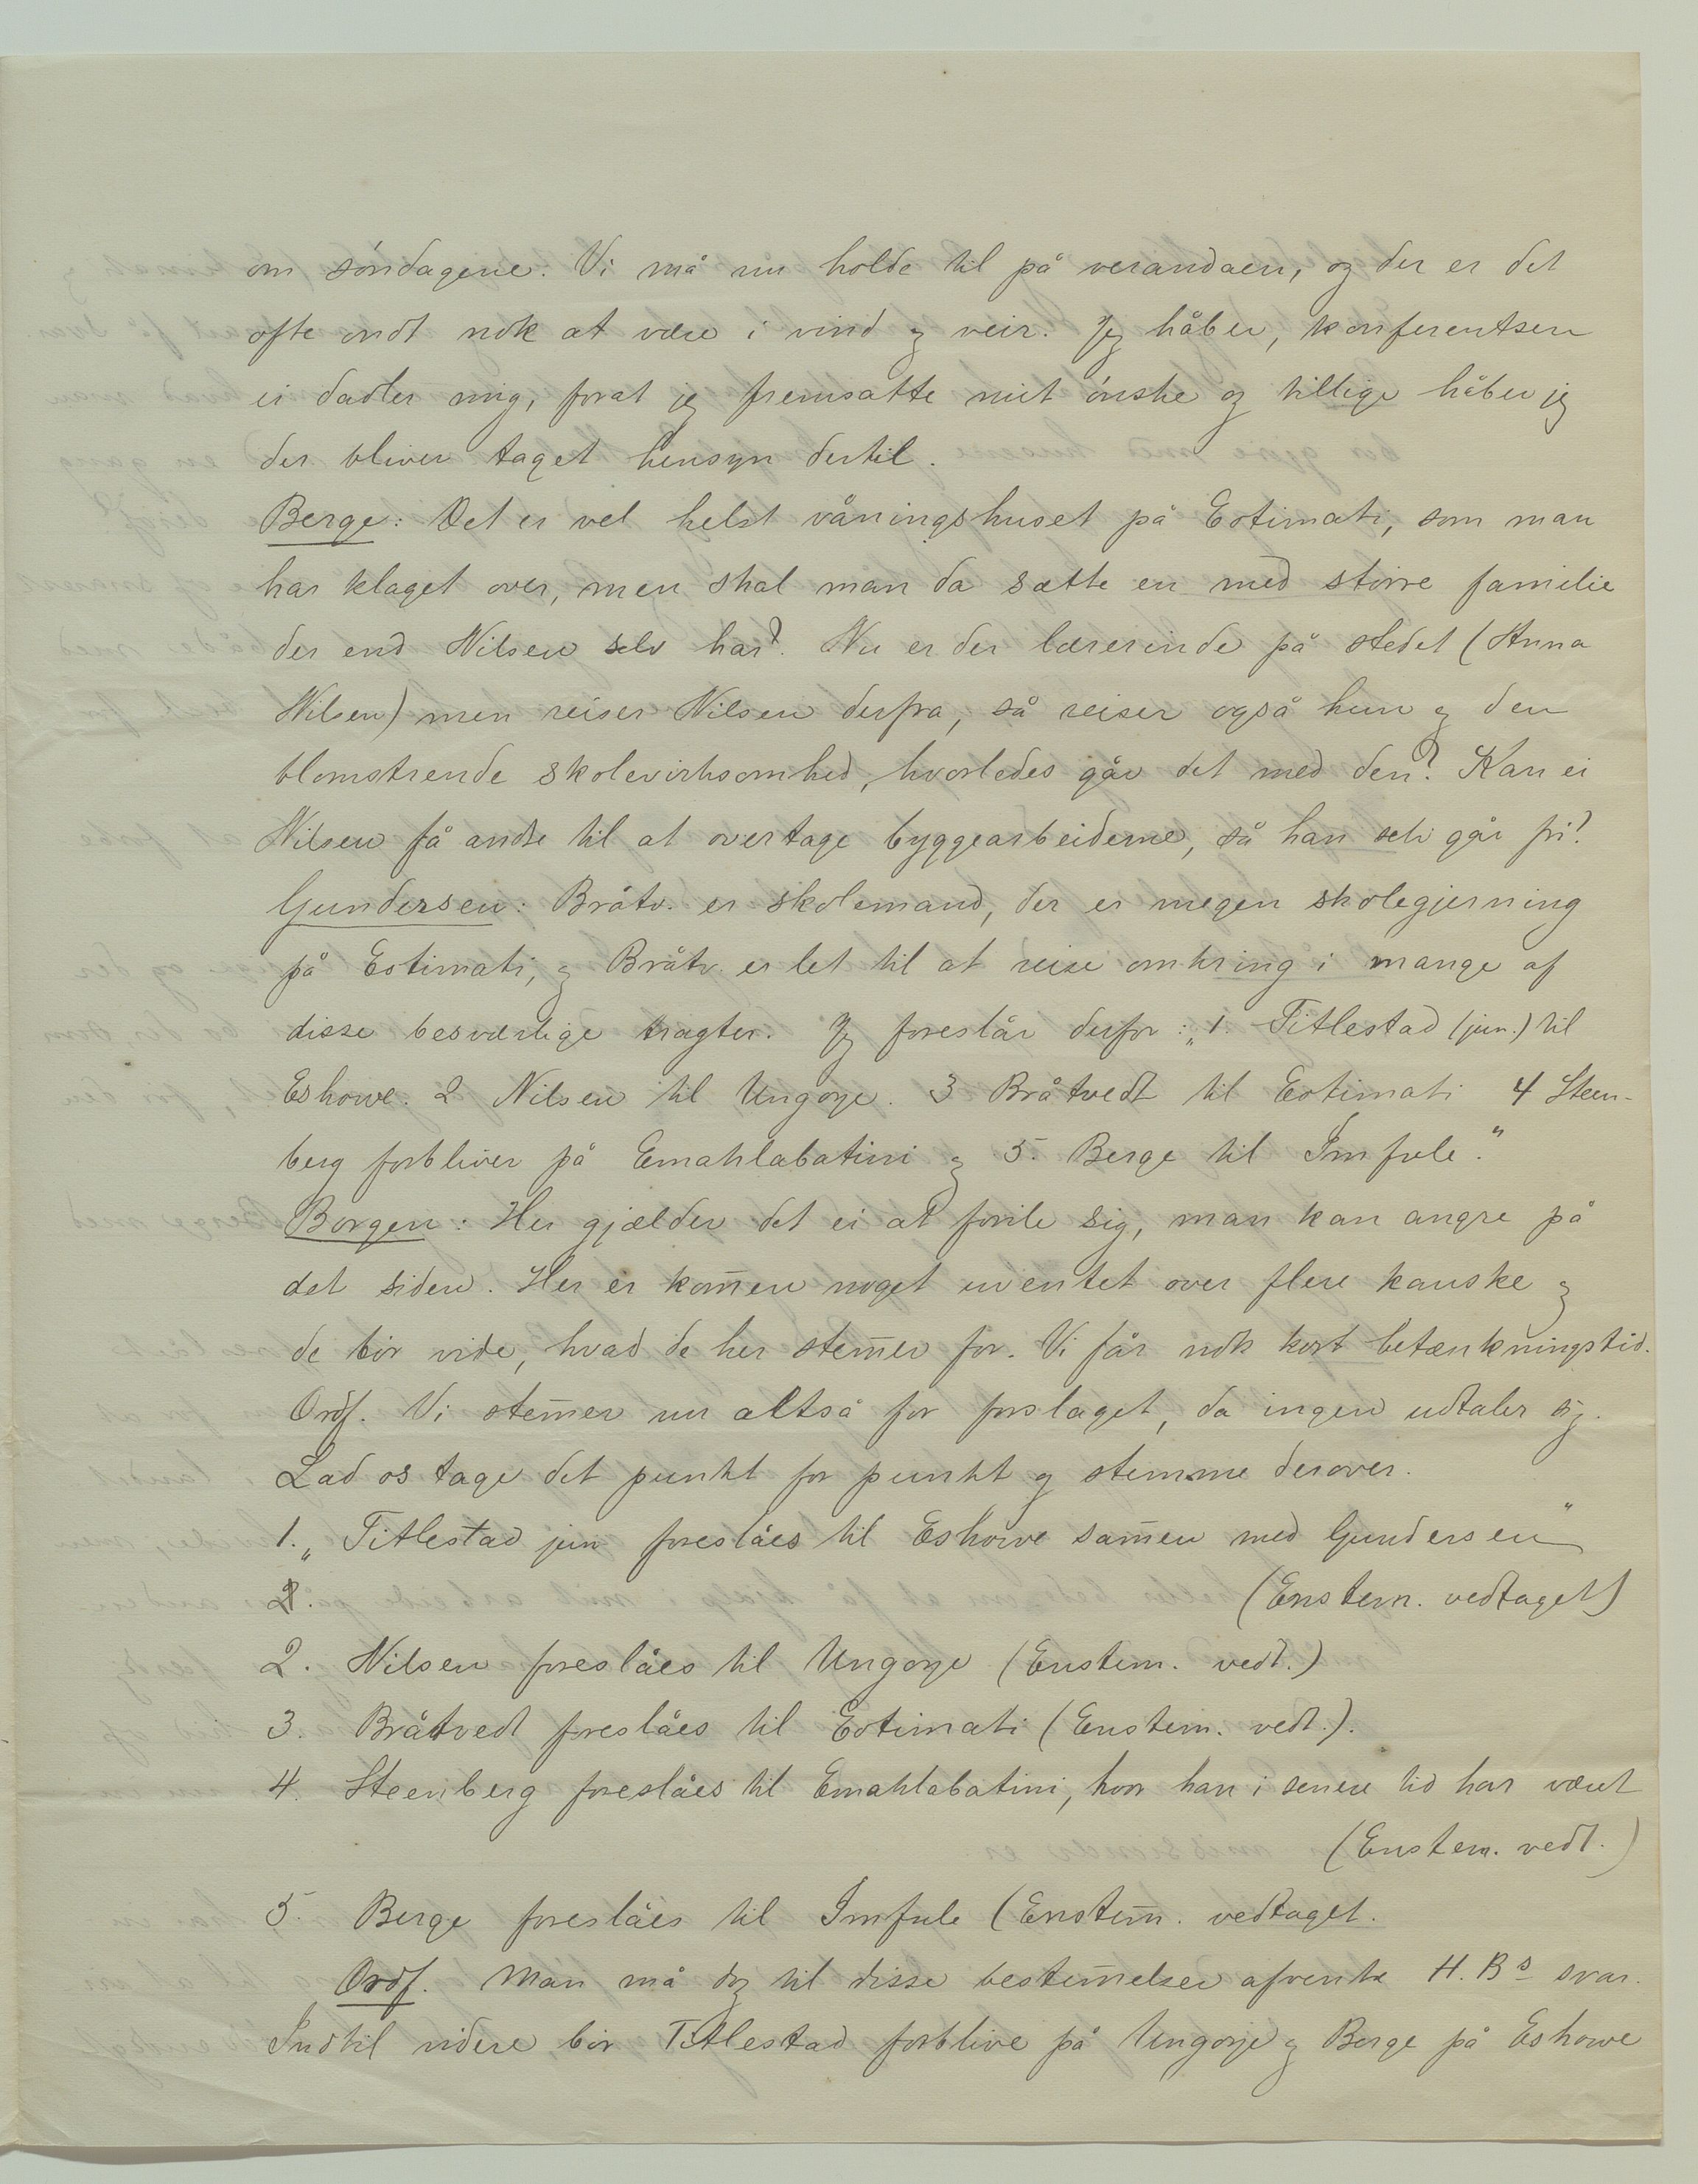 om söndagene. Vi må nu holde til på verandaen, og der er det
ofte ondt nok at være i vind og veir. Jeg håber, konferentsen
ei dadler mig, forat jeg fremsatte mit önske og tillige håber jeg
der bliver taget hensyn dertil.
Berge: Det er vel helst våningshuset på Eotimati, som man
har klaget over, men skal man da sætte en med större familie
der end Nilsen selv har? Nu er der lærerinde på stedet (Anna
Nilsen) men reiser Nilsen derfra, så reiser også hun og den
blomstrende skolevirksomhed, hvorledes går det med den? Kan ei
Nilsen få andre til at overtage byggearbeiderne, så han selv går fri?
Gundersen: Bråtv. er skolemand, der er megen skolegjerning
på Eotimati, og Bråtv. er let til at reise omkring i mange af
disse besværlige tragter. Jeg foreslår derfor: „1. Titlestad (jun.) til
Eshowe. 2 Nilsen til Ungoye. 3 Bråtvedt til Eotimati 4 Steen-
berg forbliver på Emahlabatini og 5. Berge til Imfule.“
Borgen: Her gjælder det ei at forile sig, man kan angre på
det siden. Her er kom̅en noget uventet over flere kanske og
de bör vide, hvad de her stem̅er for. Vi får nok kort betænkningstid.
Ordf. Vi stem̅er nu altså for forslaget, da ingen udtaler sig.
Lad os tage det punkt for punkt og stemme derover.
1. „Titlestad jun foreslåes til Eshowe sam̅en med Gundersen“
2. (Enstem. vedtaget)
2. Nilsen foreslåes til Ungoye (Enstem. vedt.)
3. Bråtvedt foreslåes til Eotimati (Enstem. vedt.).
4. Steenberg foreslåes til Emahlabatini, hvor han i senere tid har været
(Enstem. vedt.)
5. Berge foreslåes til Imfule (Enstem̅. vedtaget.
Ordf. Man må dog til disse bestem̅elser afvente H. Bs svar.
Indtil videre bör Titlestad forblive på Ungoye og Berge på Eshowe